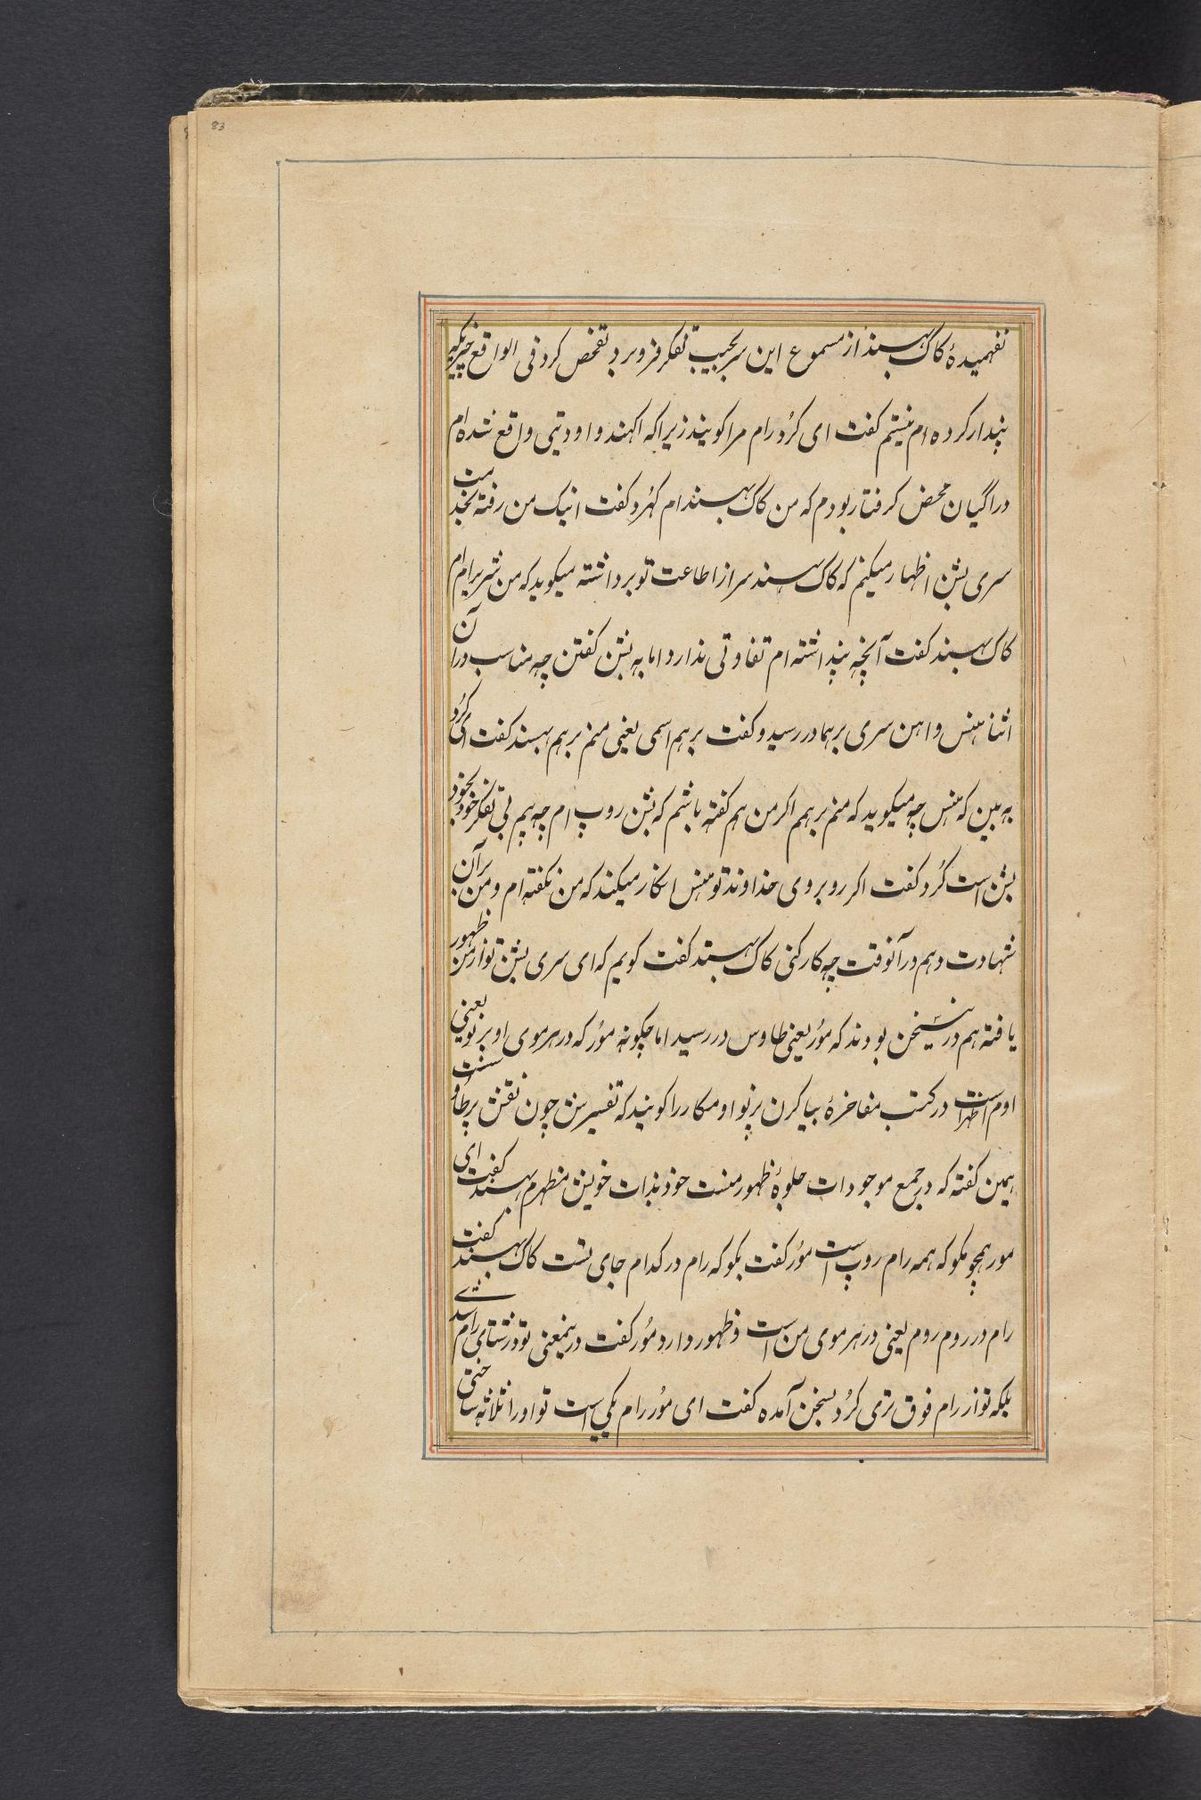 83
نفهمیدهٔ کاگ بهسند از مسموع این سر بجیب تفکر فرو برد تفحص کرد فی الواقع چیزیکه
پندار کرده ام نیستم گفت ای گرُد رام مرا گویند زیرا که اکهند و اودیتی واقع شده ام
در اگیان محض گرفتار بودم که من کاگ بهسند ام گهرُد گفت اینک من رفته بخدمت
سری بشن اظهار میکنم که کاگ بهسند سر از اطاعت تو برداشته میگوید که من شریرام ام
کاگ بهسند گفت آنچه پنداشته ام تفاوتی ندارد اما به بشن گفتن چه مناسب در آن
اثنا هنس واهن سری برهما در رسید و گفت برهم اسمی یعنی منم برهم بهسند گفت ای گرُد
به بین که هنس چه میگوید که منم برهم اگر من هم گفته باشم که بشن روپ ام چه بیم بی تفکر خود بخود
بشن است گرُد گفت اگر روبروی خداوند تو هنس انکار میکند که من نگفته ام و من بر آن
شهادت دهم در آنوقت چه کار کنی کاگ بهسند گفت گویم که ای سری بشن تو از من ظهور
یافته هم درین سخن بودند که مُور یعنی طاوس در رسید اما چگونه مُور که در هر موی او پرتو یعنی
اوم اظهر است در کتب مفاخرهٔ بیاکرن پرتو اومکار را گویند که تفسیرش چون نقش پر طاوُ سست
همین گفته که در جمع موجودات جلوهٔ ظهور منست خود بذات خویش مظهرم بهسند گفت ای
مور همچو مگو که همه رام روپ است مُور گفت بگو که رام در کدام جای نشست کاگ بهسند گفت
رام در روم روم یعنی در هر موی من است و ظهور دارد مُور گفت درینمعنی تو در نشتای رام شدی
بلکه تو از رام فوق تری گرُد بسخن آمده گفت ای مُور رام یکی است تو او را ثلاثه ساختی